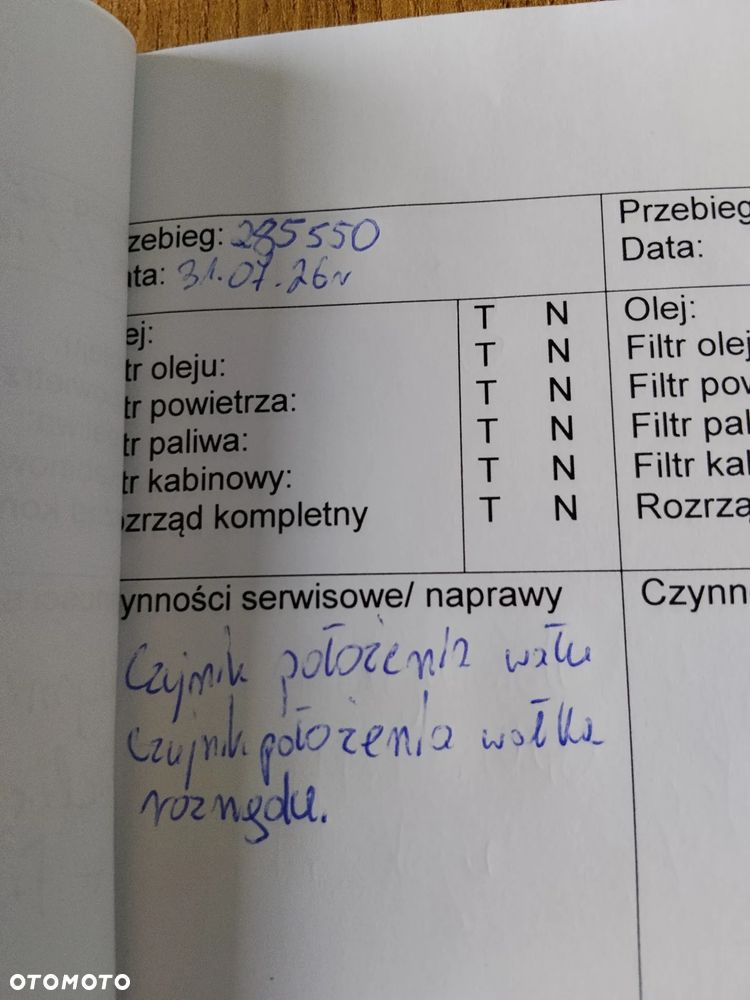 zebieg: 285550
ta: 31.07.26r
ej: T N
tr oleju: T N
tr powietrza: T N
tr paliwa: T N
tr kabinowy: T N
ozrząd kompletny T N
ynności serwisowe/ naprawy
Czujnik położenia wału
czujnik położenia wałka
rozrządu.
Przebieg
Data:
Olej:
Filtr olej
Filtr pow
Filtr pal
Filtr kal
Rozrzą
Czynn
OTOMOTO